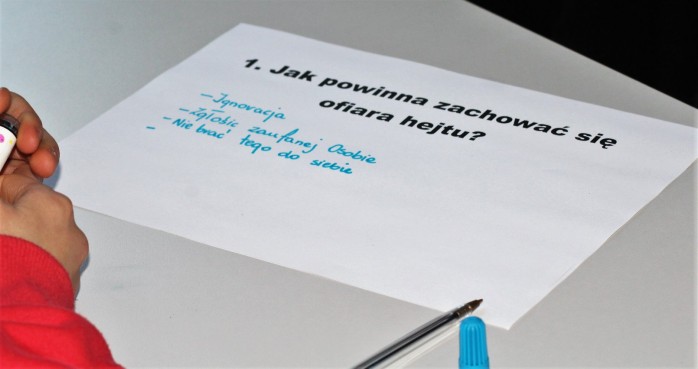 1. Jak powinna zachować się
ofiara hejtu?
- Ignoracja
- Zgłobic zaufanej Osobie
- Nie brać tego do siebie
-